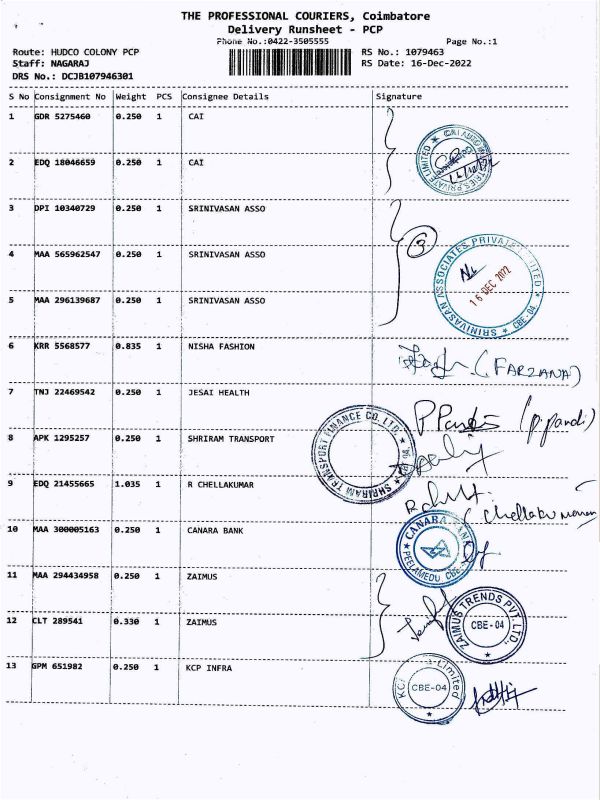 THE PROFESSIONAL COURIERS, Coimbatore
Delivery Runsheet - PCP
Phone No.:0422-3505555 Page No.:1
Route: HUDCO COLONY PCP RS No.: 1079463
Staff: NAGARAJ RS Date: 16-Dec-2022
DRS No.: DCJB107946301
S No Consignment No Weight PCS Consignee Details Signature
1 GDR 5275460 0.250 1 CAI
2 EDQ 18046659 0.250 1 CAI
3 DPI 10340729 0.250 1 SRINIVASAN ASSO
3
4 MAA 565962547 0.250 1 SRINIVASAN ASSO
SRINIVASAN ASSOCIATES PRIVATE LIMITED
16 DEC 2022
CBE-04
5 MAA 296139687 0.250 1 SRINIVASAN ASSO
6 KRR 5568577 0.835 1 NISHA FASHION
(FARZANA)
7 TNJ 22469542 0.250 1 JESAI HEALTH
(P. Pandi)
8 APK 1295257 0.250 1 SHRIRAM TRANSPORT
SHRIRAM TRANSPORT FINANCE CO. LTD.
9 EDQ 21455665 1.035 1 R CHELLAKUMAR
10 MAA 300005163 0.250 1 CANARA BANK
CANARA BANK
PEELAMEDU, CBE
11 MAA 294434958 0.250 1 ZAIMUS
12 CLT 289541 0.330 1 ZAIMUS
ZAIMUS TRENDS PVT. LTD.,
CBE-04
13 GPM 651982 0.250 1 KCP INFRA
Limited
CBE-04